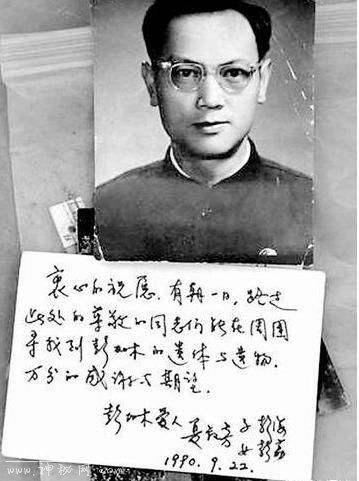 衷心的祝愿．有朝一日，路过
此处的尊敬的同志们能在周围
寻找到彭加木的遗体与遗物．
万分的感谢与期望．
彭加木爱人 夏叔芳 子 彭海
女 彭荔
1990．9．22．